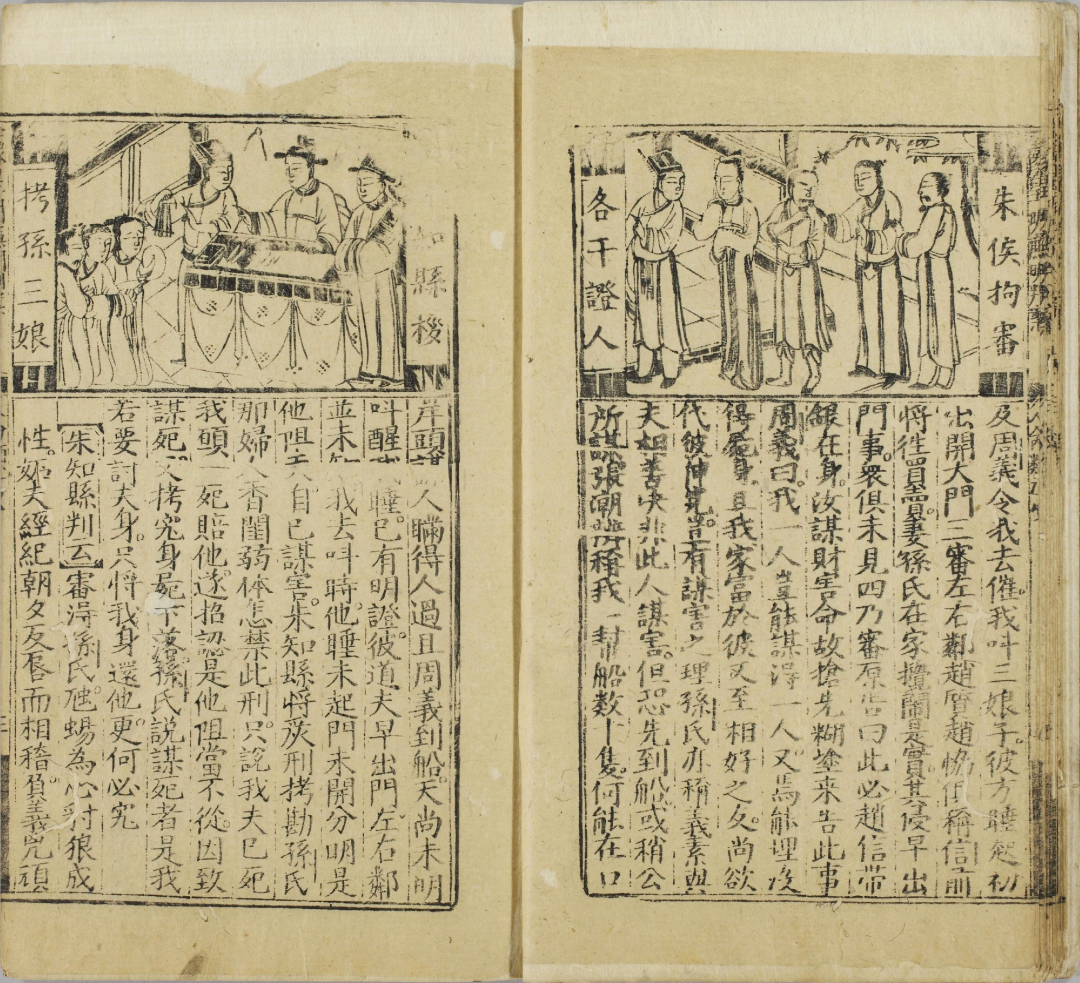 朱侯拘審
各干證人
及周義令我去催。我叫三娘子。彼方睡起初
出開大門三審左右鄰趙質趙協俱稱信前
將徃買賣妻孫氏在家攪鬧是實。其侵早出
門事。衆俱未見四乃審原告曰此必趙信帶
銀在身。汝謀財害命故搶先糊塗來告此事
周義曰。我一人豈能謀得一人。又焉能埋沒
得屍身。且我家富於彼又至相好之友。尚欲
代彼伸寃。豈有謀害之理孫氏亦稱義素與
夫相善決非此人謀害。但恐先到船或稍公
所謀張潮辨稱我一幇船数十隻。何能在口
知縣梭
拷孫三娘
岸頭謀人瞞得人過且周義到船。天尚未明
叫醒我睡。已有明證。彼道夫早出門。左右鄰
並未知我去叫時。他睡未起門未開分明是
他阻夫自已謀害。朱知縣將嚴刑拷勘孫氏
那婦人香閨弱体怎禁此刑。只說我夫已死
我𭃄一死賠他。遂招認是他阻當不從。因致
謀死。又拷究身屍下落。孫氏說謀死者是我
若要討夫身。只將我身還他。更何必究
朱知縣判云審得孫氏虺蜴為心豺狼成
性。妬夫經紀朝夕反唇而相稽。負義兇頑